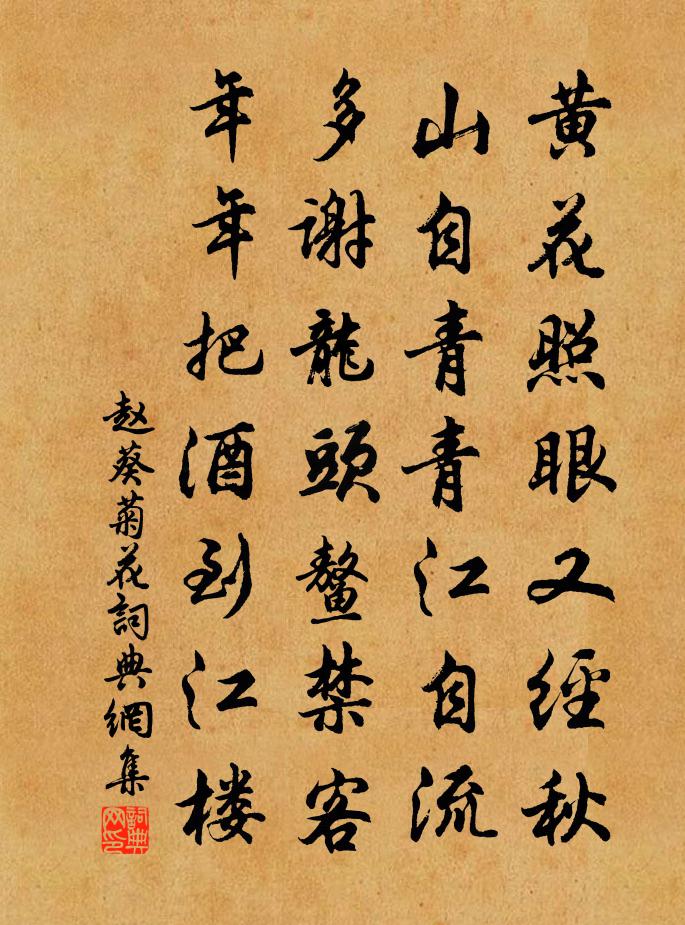 黄花照眼又經秋
山自青青江自流
多謝龍頭鳌禁客
年年把酒到江楼
赵葵菊花詞典網集
詞典网印